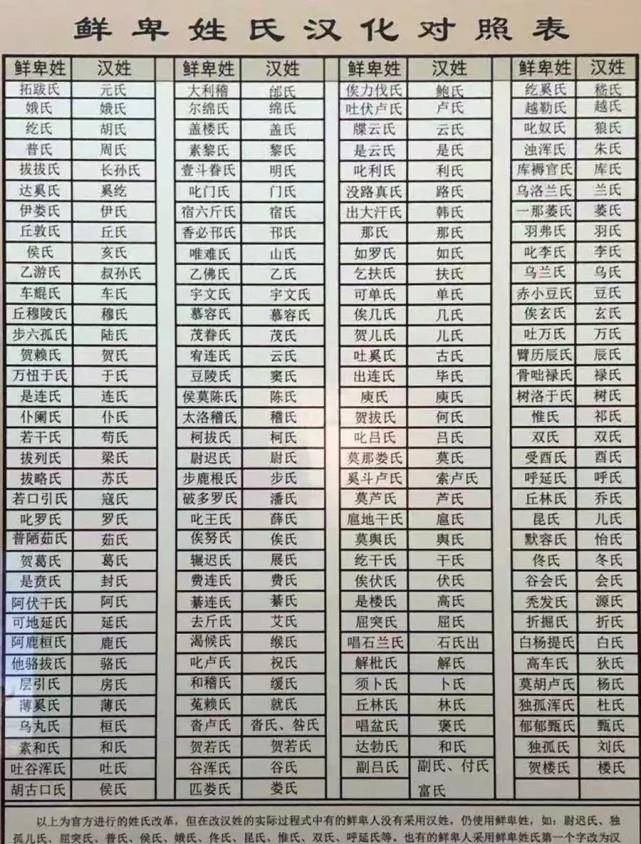 鲜卑姓氏汉化对照表
鲜卑姓 汉姓 鲜卑姓 汉姓 鲜卑姓 汉姓 鲜卑姓 汉姓
拓跋氏 元氏 大利稽 邰氏 俟力伐氏 鲍氏 纥奚氏 嵇氏
娥氏 娥氏 尔绵氏 绵氏 吐伏卢氏 卢氏 越勒氏 越氏
纥氏 胡氏 盖楼氏 盖氏 牒云氏 云氏 叱奴氏 狼氏
普氏 周氏 素黎氏 黎氏 是云氏 是氏 浊浑氏 朱氏
拔拔氏 长孙氏 壹斗眷氏 明氏 叱利氏 利氏 库褥官氏 库氏
达奚氏 奚纥 叱门氏 门氏 没路真氏 路氏 乌洛兰氏 兰氏
伊娄氏 伊氏 宿六斤氏 宿氏 出大汗氏 韩氏 一那蒌氏 蒌氏
丘敦氏 丘氏 香必邗氏 邗氏 那氏 那氏 羽弗氏 羽氏
侯氏 亥氏 唯难氏 山氏 如罗氏 如氏 叱李氏 李氏
乙游氏 叔孙氏 乙佛氏 乙氏 乞扶氏 扶氏 乌兰氏 乌氏
车焜氏 车氏 宇文氏 宇文氏 可单氏 单氏 赤小豆氏 豆氏
丘穆陵氏 穆氏 慕容氏 慕容氏 俟几氏 几氏 俟玄氏 玄氏
步六孤氏 陆氏 茂眷氏 茂氏 贺儿氏 儿氏 吐万氏 万氏
贺赖氏 贺氏 宥连氏 云氏 吐奚氏 古氏 臂历辰氏 辰氏
万忸于氏 于氏 豆陵氏 窦氏 出连氏 毕氏 骨咄禄氏 禄氏
是连氏 连氏 侯莫陈氏 陈氏 庾氏 庾氏 树洛于氏 树氏
仆阑氏 仆氏 太洛稽氏 稽氏 贺拔氏 何氏 惟氏 祁氏
若干氏 苟氏 柯拔氏 柯氏 叱吕氏 吕氏 双氏 双氏
拔列氏 梁氏 尉迟氏 尉氏 莫那娄氏 莫氏 受酉氏 酉氏
拔略氏 苏氏 步鹿根氏 步氏 奚斗卢氏 索卢氏 呼延氏 呼氏
若口引氏 寇氏 破多罗氏 潘氏 莫芦氏 芦氏 丘林氏 乔氏
叱罗氏 罗氏 叱王氏 薛氏 扈地干氏 扈氏 昆氏 儿氏
普陋茹氏 茹氏 俟努氏 俟氏 莫舆氏 舆氏 默容氏 怡氏
贺葛氏 葛氏 辗迟氏 展氏 纥干氏 干氏 佟氏 冬氏
是贲氏 封氏 费连氏 费氏 俟伏氏 伏氏 谷会氏 会氏
阿伏干氏 阿氏 綦连氏 綦氏 是楼氏 高氏 秃发氏 源氏
可地延氏 延氏 去斤氏 艾氏 屈突氏 屈氏 折掘氏 折氏
阿鹿桓氏 鹿氏 渴候氏 缑氏 唱石兰氏 石氏出 白杨提氏 白氏
他骆拔氏 骆氏 叱卢氏 祝氏 解枇氏 解氏 高车氏 狄氏
层引氏 房氏 和稽氏 缓氏 须卜氏 卜氏 莫胡卢氏 杨氏
薄奚氏 薄氏 菟赖氏 就氏 丘林氏 林氏 独孤浑氏 杜氏
乌丸氏 桓氏 沓卢氏 沓氏、咎氏 唱盆氏 褒氏 郁郁甄氏 甄氏
素和氏 和氏 贺若氏 贺若氏 达勃氏 和氏 独孤氏 刘氏
吐谷浑氏 吐氏 谷浑氏 谷氏 副吕氏 副氏、付氏 贺楼氏 楼氏
胡古口氏 侯氏 匹娄氏 娄氏 富氏
以上为官方进行的姓氏改革，但在改汉姓的实际过程式中有的鲜卑人没有采用汉姓，仍使用鲜卑姓，如：尉迟氏、独
孤儿氏、屈突氏、普氏、侯氏、娥氏、佟氏、昆氏、惟氏、双氏、呼延氏等。也有的鲜卑人采用鲜卑姓氏第一个字改为汉